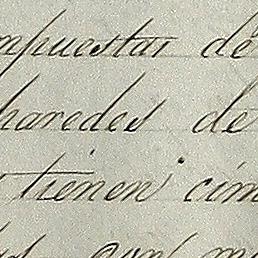 mpuestas de
paredes de
tienen cim